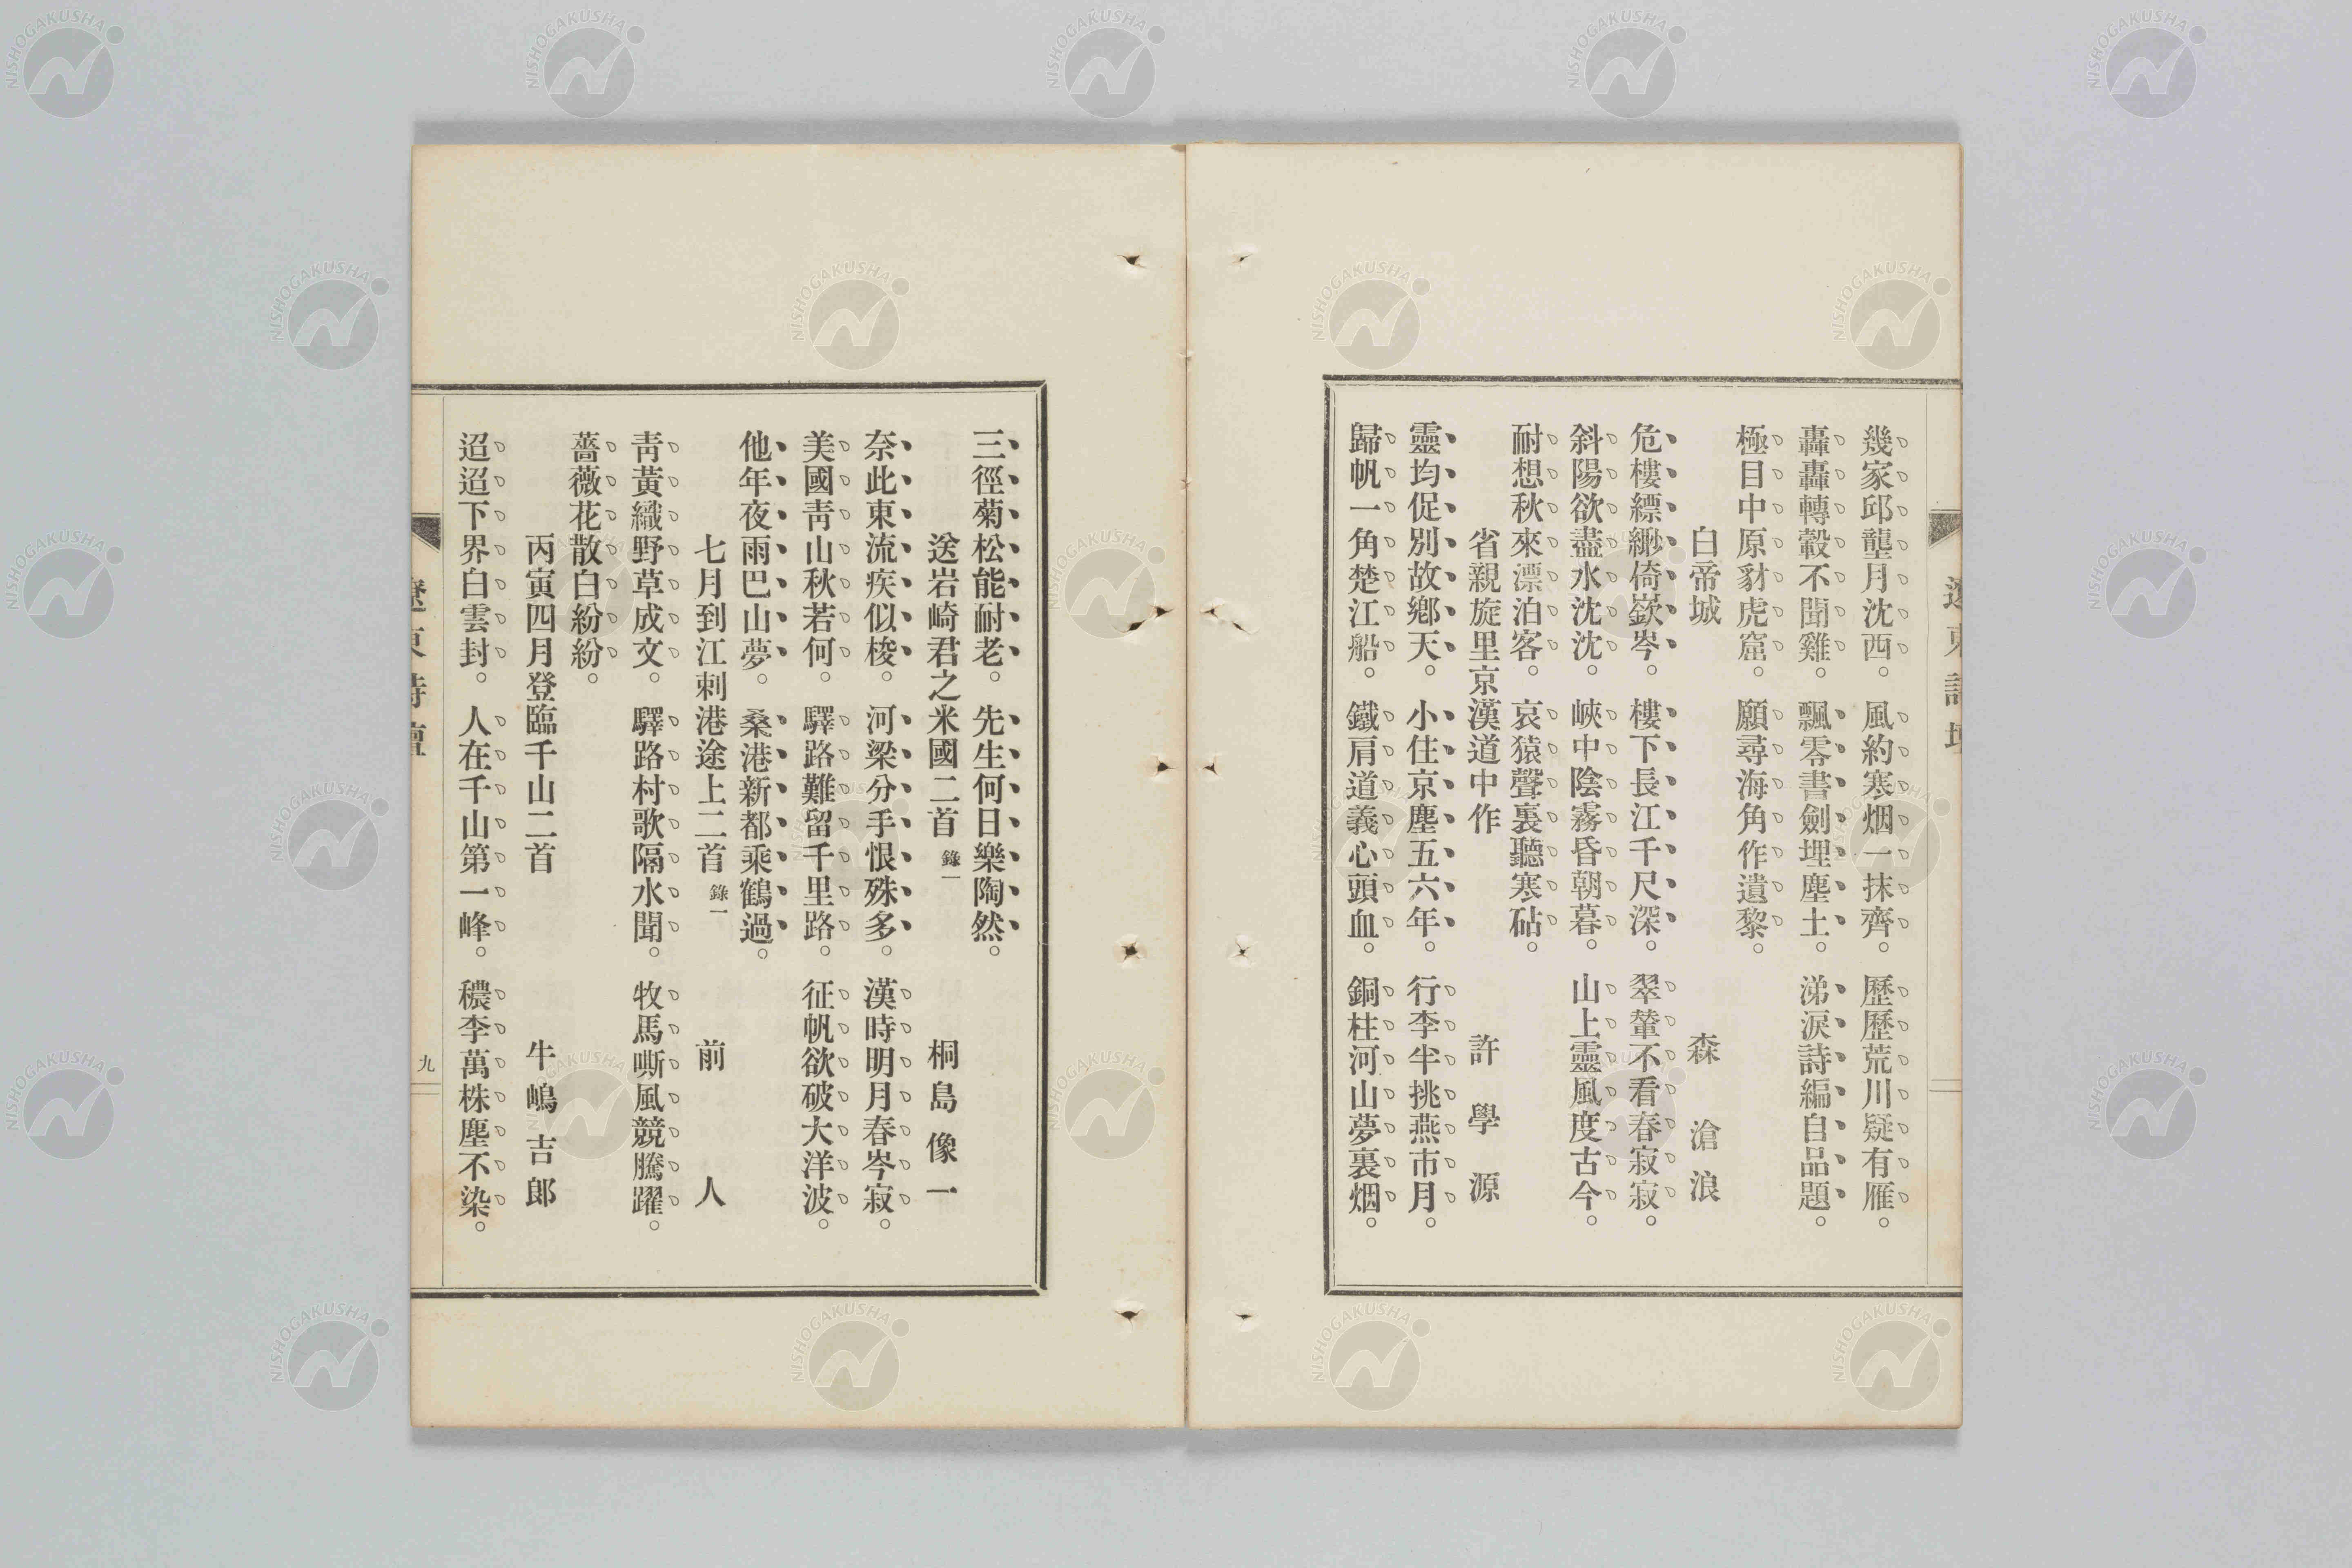 幾家邱壟月沈西。風約寒烟一抹齊。歷歷荒川疑有雁。
轟轟轉轂不聞雞。飄零書劍埋塵土。涕淚詩編自品題。
極目中原豺虎窟。願尋海角作遺黎。
白帝城　森滄浪
危樓縹緲倚嶔岑。樓下長江千尺深。翠輦不看春寂寂。
斜陽欲盡水沈沈。峽中陰霧昏朝暮。山上靈風度古今。
耐想秋來漂泊客。哀猿聲裏聽寒砧。
省親旋里京漢道中作　許學源
靈均促別故鄉天。小住京塵五六年。行李半挑燕市月。
歸帆一角楚江船。鐵肩道義心頭血。銅柱河山夢裏烟。
三徑菊松能耐老。先生何日樂陶然。
送岩崎君之米國二首 錄一　桐島像一
奈此東流疾似梭。河梁分手恨殊多。漢時明月春岑寂。
美國靑山秋若何。驛路難留千里路。征帆欲破大洋波。
他年夜雨巴山夢。桑港新都乘鶴過。
七月到江刺港途上二首 錄一　前人
靑黃織野草成文。驛路村歌隔水聞。牧馬嘶風競騰躍。
薔薇花散白紛紛。
丙寅四月登臨千山二首　牛嶋吉郎
迢迢下界白雲封。人在千山第一峰。穠李萬株塵不染。
九
NISHOGAKUSHA